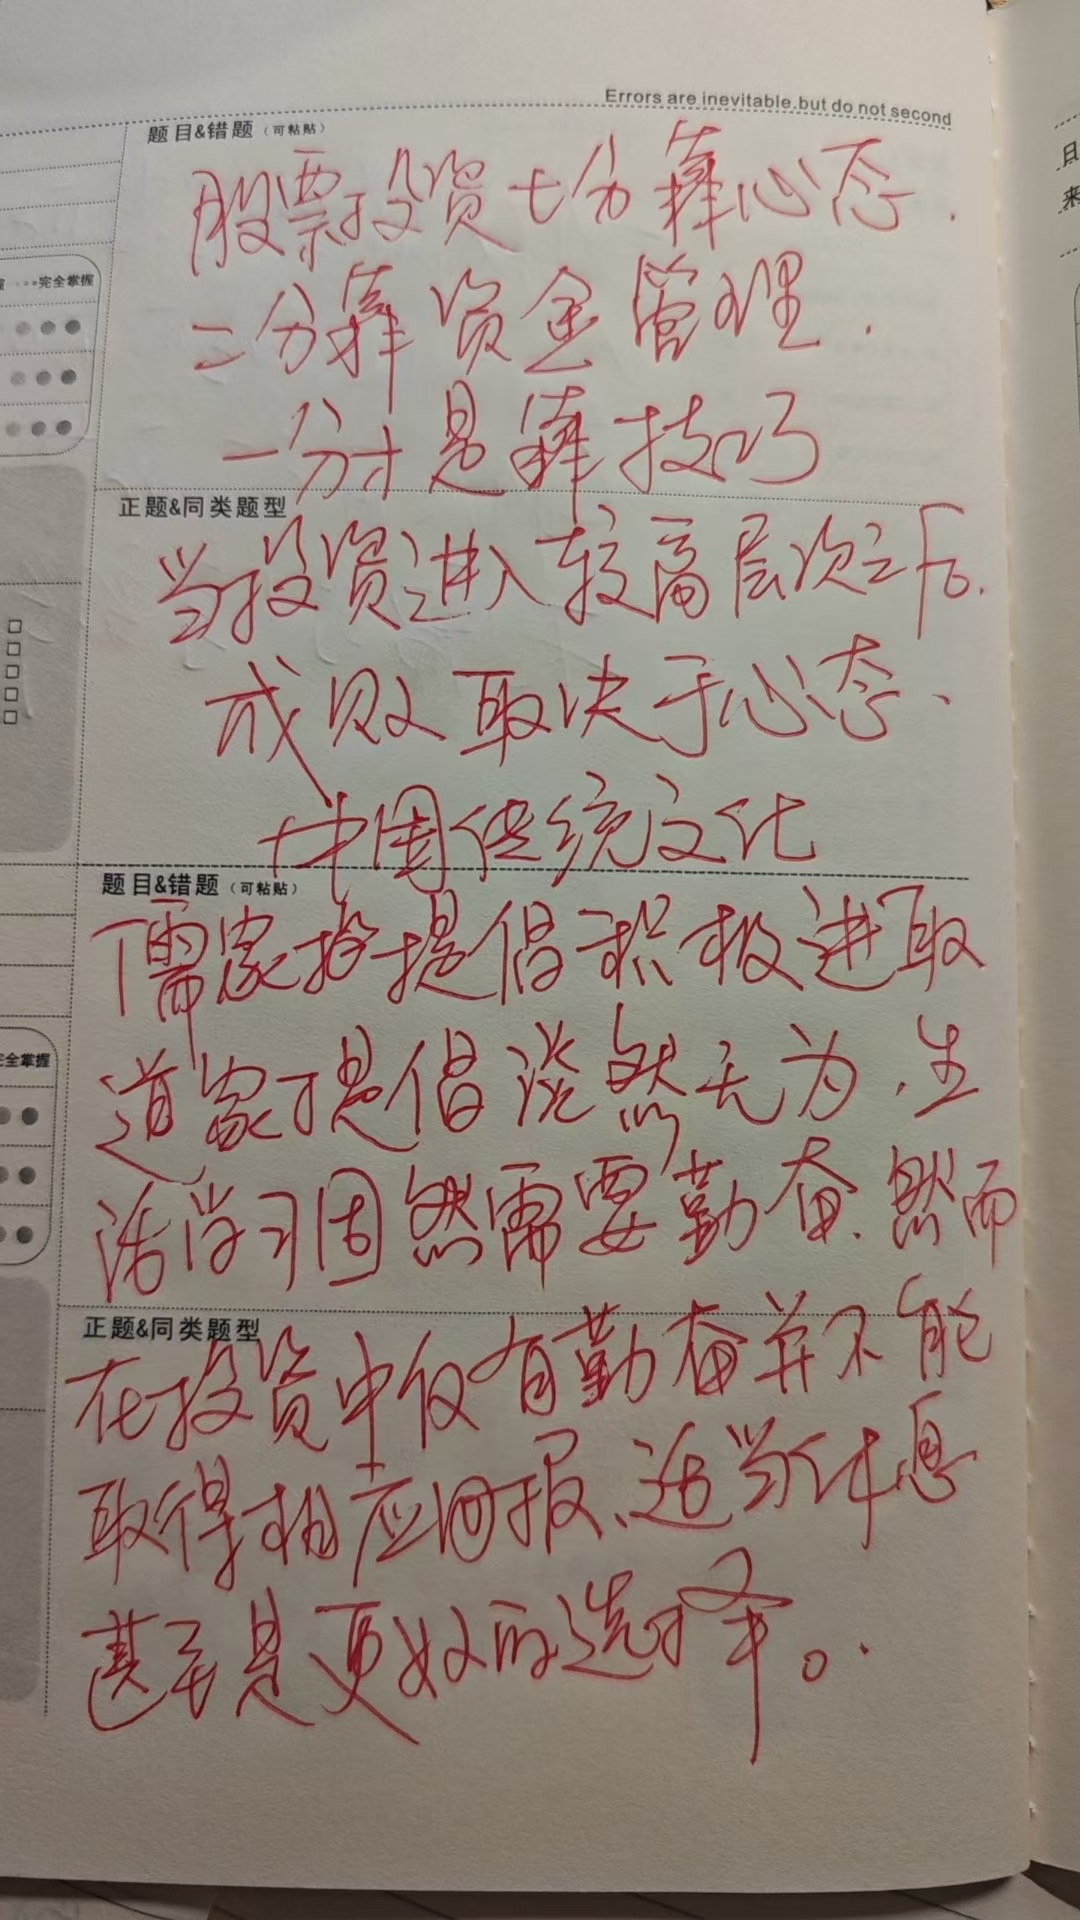 Errors are inevitable.but do not second
题目&错题（可粘贴）
股票投资七分靠心态.
完全掌握
二分靠资金管理.
一分才是靠技巧
正题&同类题型
当投资进入较高层次之后.
成败取决于心态、
中国传统文化
题目&错题（可粘贴）
儒家提倡积极进取
道家提倡淡然无为,生
全掌握
活学习固然需要勤奋.然而
正题&同类题型
在投资中仅有勤奋并不能
取得相应回报、适当休息
甚至是更好的选择。